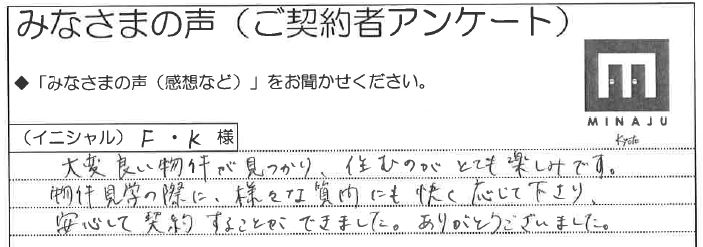 みなさまの声（ご契約者アンケート）
◆「みなさまの声（感想など）」をお聞かせください。
MINAJU
Kyoto
（イニシャル） F・K 様
大変良い物件が見つかり、住むのがとても楽しみです。
物件見学の際に、様々な質内にも快く応じて下さり、
安心して契約することができました。ありがとうございました。